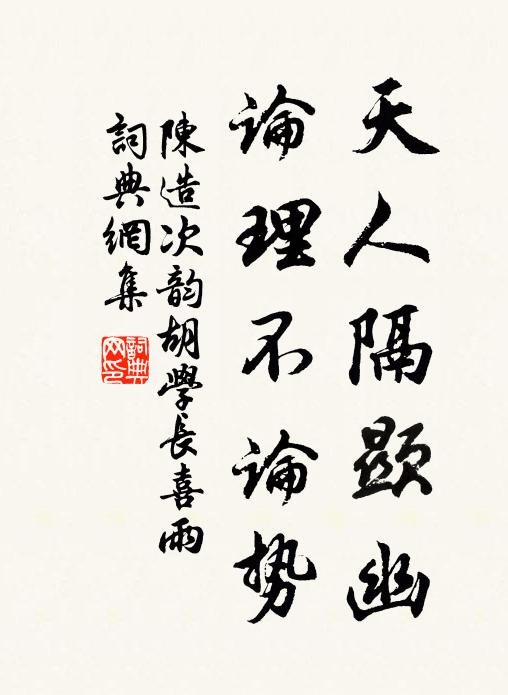 天人隔顯幽
論理不論勢
陳造次韵胡學長喜雨
詞典網集
詞典網印